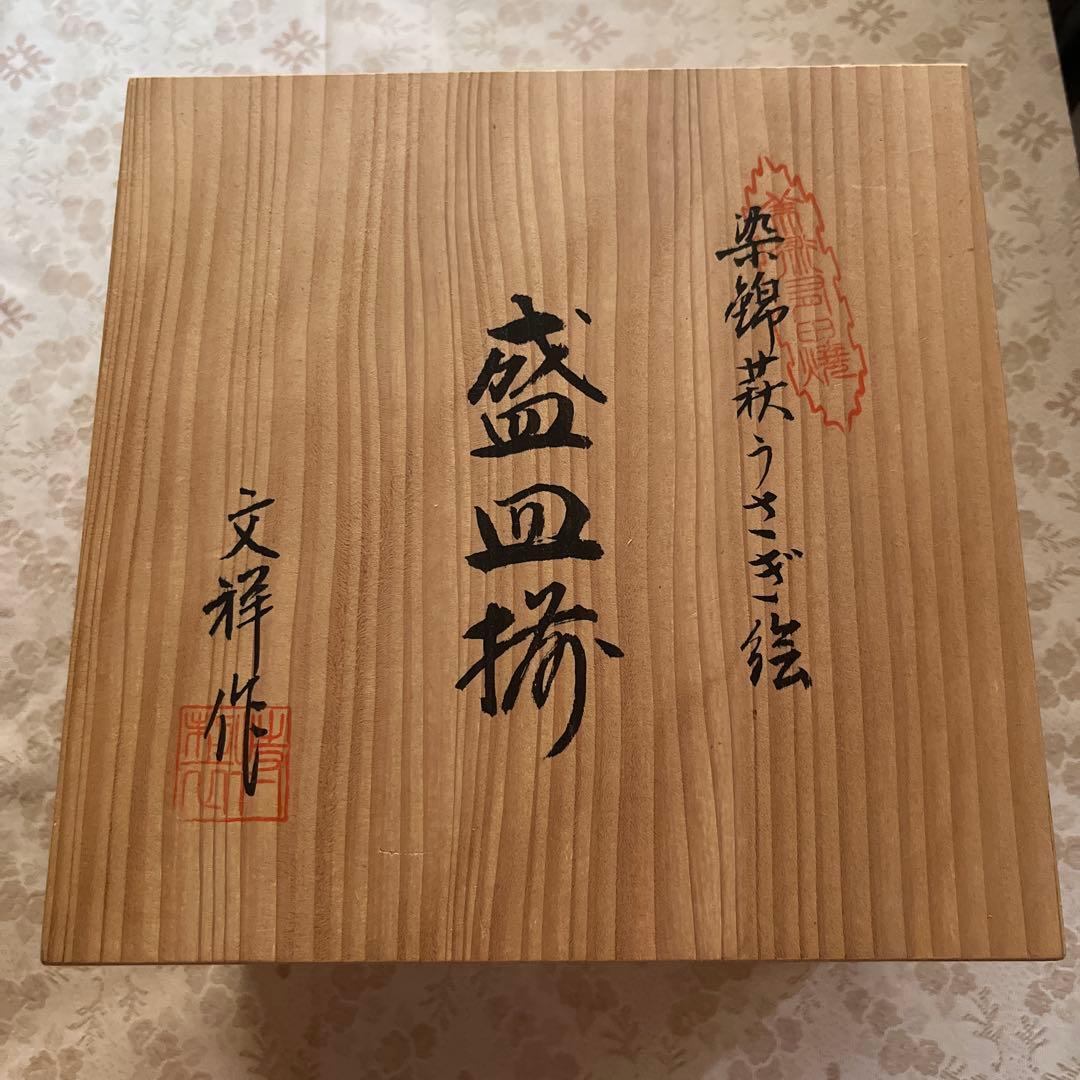 染錦萩うさぎ絵
盛皿揃
文祥作